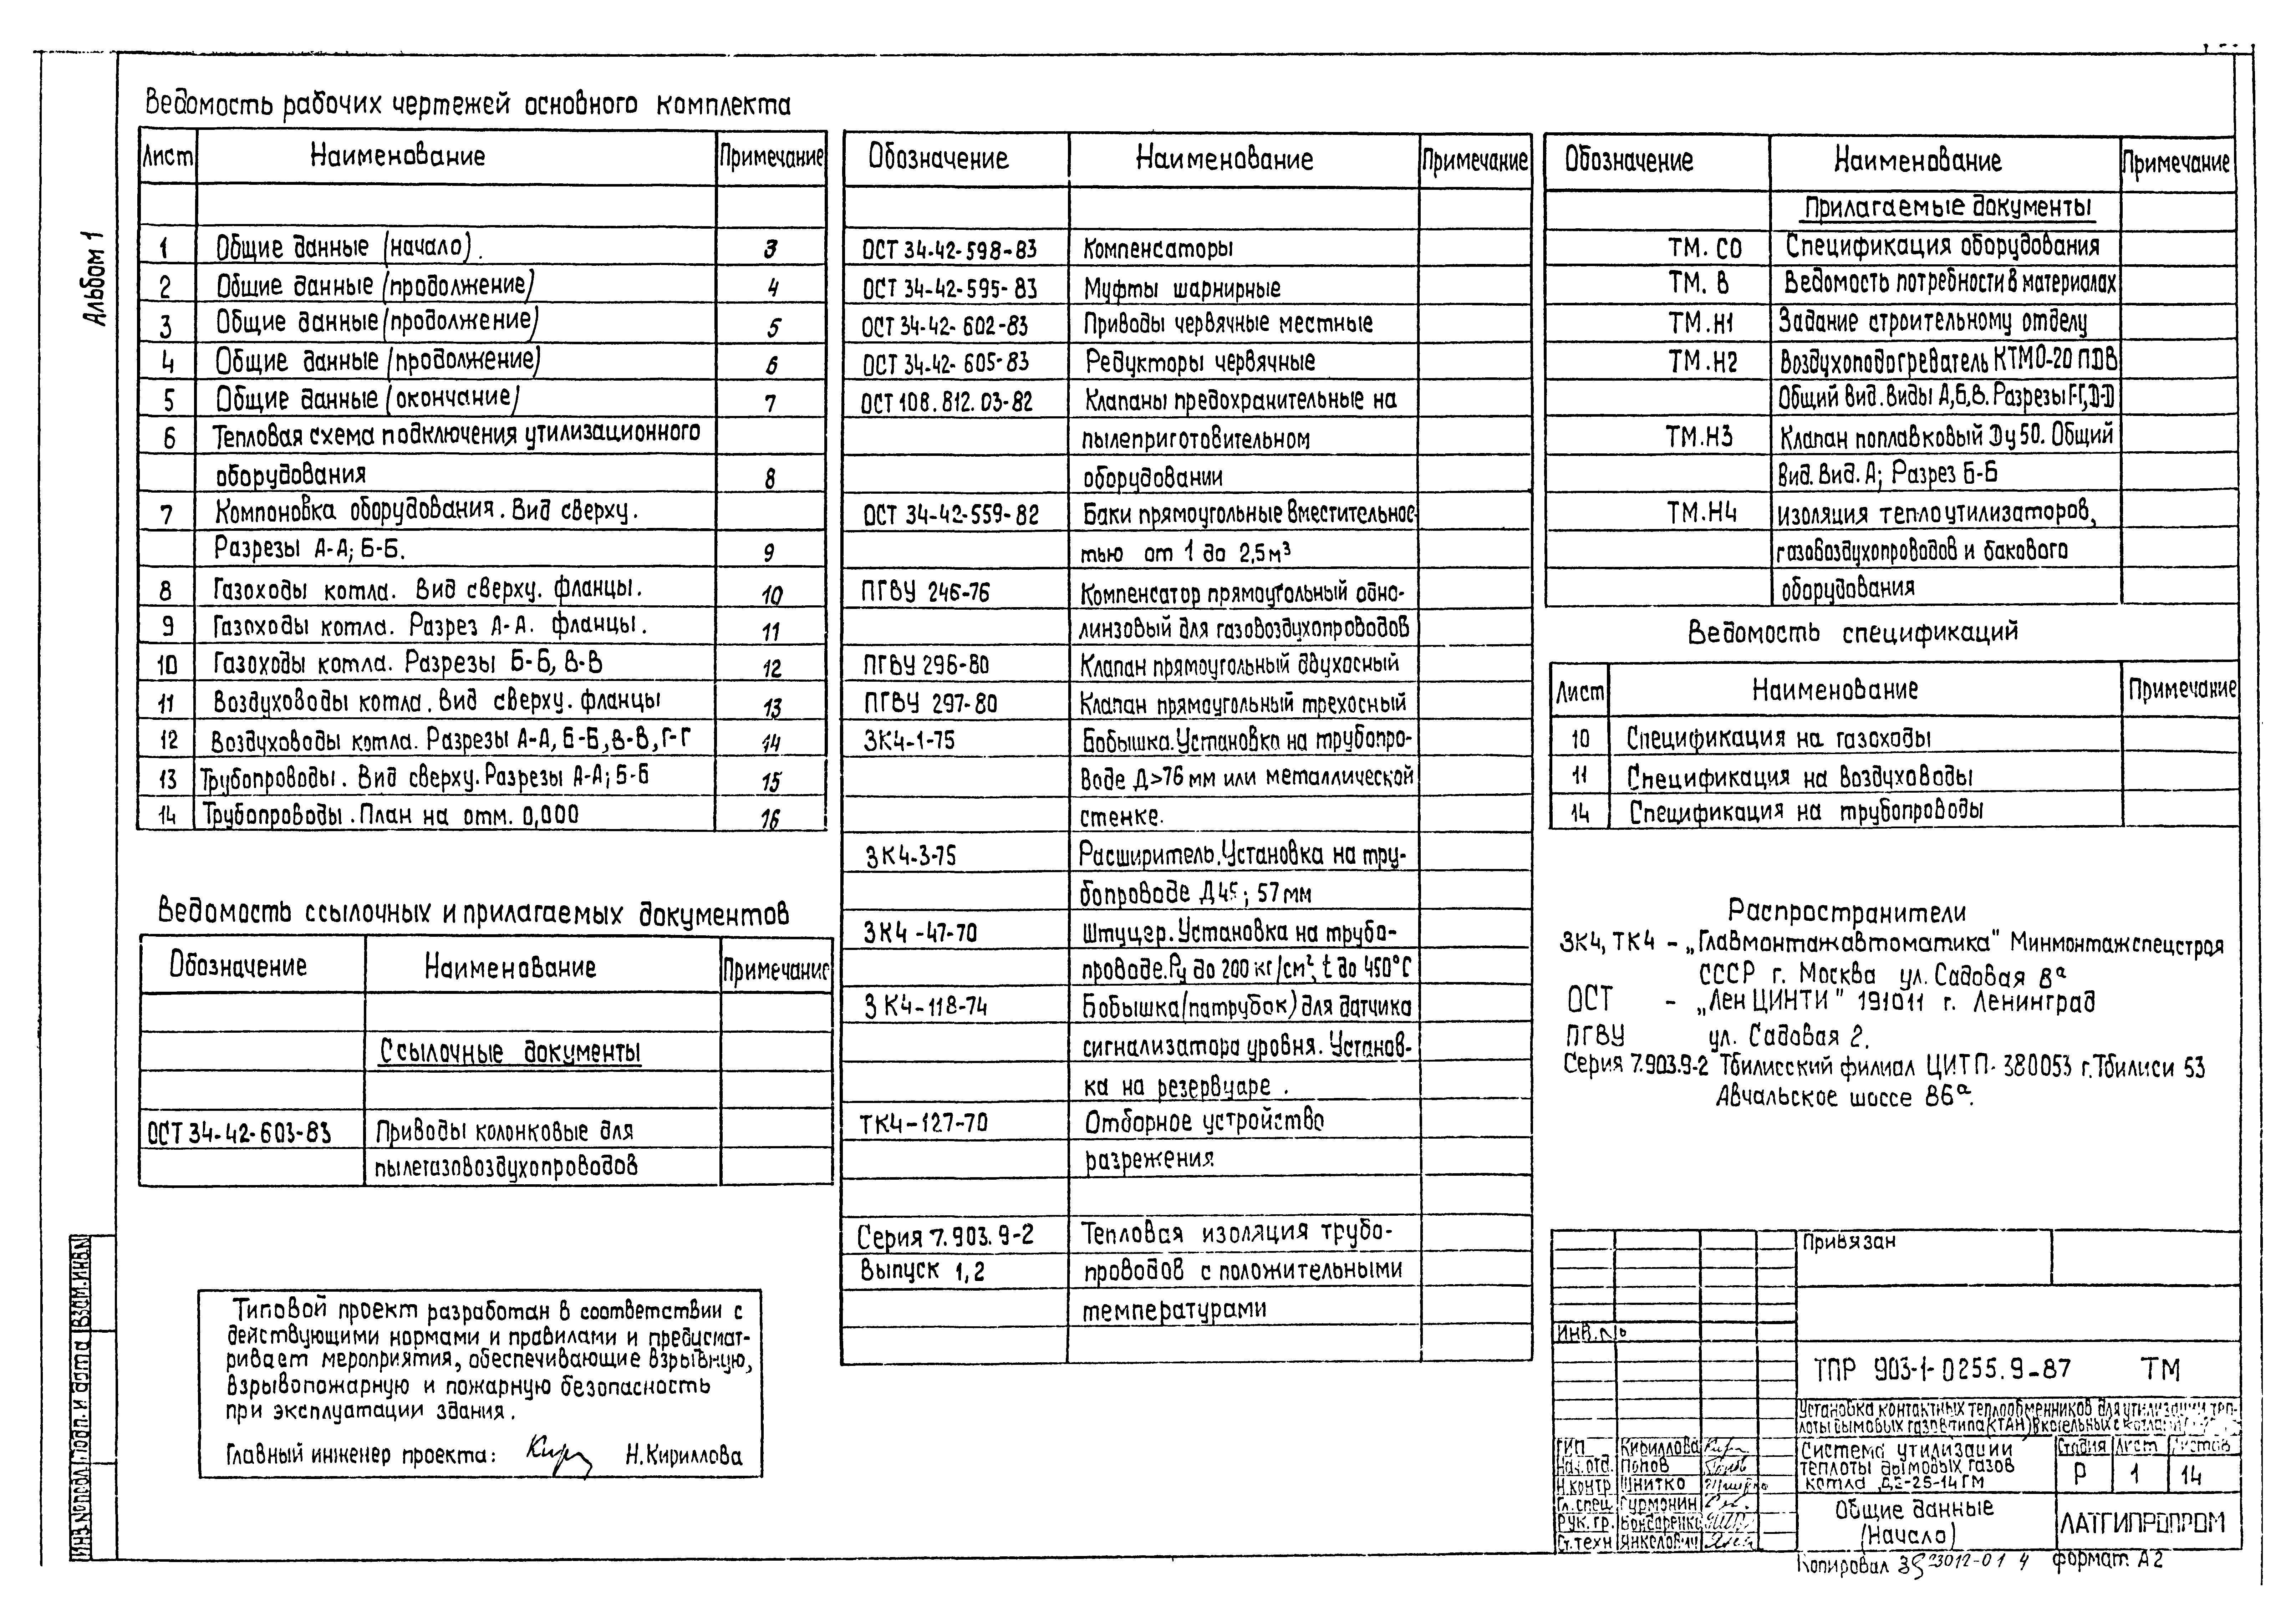 Альбом 1
Ведомость рабочих чертежей основного комплекта
Лист Наименование Примечание
1 Общие данные (начало). 3
2 Общие данные (продолжение) 4
3 Общие данные (продолжение) 5
4 Общие данные (продолжение) 6
5 Общие данные (окончание) 7
6 Тепловая схема подключения утилизационного
оборудования 8
7 Компоновка оборудования. Вид сверху.
Разрезы А-А; Б-Б. 9
8 Газоходы котла. Вид сверху. фланцы. 10
9 Газоходы котла. Разрез А-А. фланцы. 11
10 Газоходы котла. Разрезы Б-Б, В-В 12
11 Воздуховоды котла. Вид сверху. фланцы 13
12 Воздуховоды котла. Разрезы А-А, Б-Б, В-В, Г-Г 14
13 Трубопроводы. Вид сверху. Разрезы А-А; Б-Б 15
14 Трубопроводы. План на отм. 0,000 16
Ведомость ссылочных и прилагаемых документов
Обозначение Наименование Примечание
Ссылочные документы
ОСТ 34-42-603-83 Приводы колонковые для
пылегазовоздухопроводов
Типовой проект разработан в соответствии с
действующими нормами и правилами и предусмат-
ривает мероприятия, обеспечивающие взрывную,
взрывопожарную и пожарную безопасность
при эксплуатации здания.
Главный инженер проекта: Н.Кириллова
Обозначение Наименование Примечание
ОСТ 34-42-598-83 Компенсаторы
ОСТ 34-42-595-83 Муфты шарнирные
ОСТ 34-42-602-83 Приводы червячные местные
ОСТ 34-42-605-83 Редукторы червячные
ОСТ 108.812.03-82 Клапаны предохранительные на
пылеприготовительном
оборудовании
ОСТ 34-42-559-82 Баки прямоугольные вместительнос-
тью от 1 до 2,5м³
ПГВУ 246-76 Компенсатор прямоугольный одно-
линзовый для газовоздухопроводов
ПГВУ 296-80 Клапан прямоугольный двухосный
ПГВУ 297-80 Клапан прямоугольный трехосный
ЗК4-1-75 Бобышка. Установка на трубопро-
воде Д>76 мм или металлической
стенке.
ЗК4-3-75 Расширитель. Установка на тру-
бопроводе Д45; 57мм
ЗК4-47-70 Штуцер. Установка на трубо-
проводе. Ру до 200 кг/см², t до 450°С
ЗК4-118-74 Бобышка (патрубок) для датчика
сигнализатора уровня. Установ-
ка на резервуаре.
ТК4-127-70 Отборное устройство
разрежения
Серия 7.903.9-2 Тепловая изоляция трубо-
Выпуск 1,2 проводов с положительными
температурами
Обозначение Наименование Примечание
Прилагаемые документы
ТМ.СО Спецификация оборудования
ТМ.В Ведомость потребности в материалах
ТМ.Н1 Задание строительному отделу
ТМ.Н2 Воздухоподогреватель КТМО-20 ПДВ
Общий вид. Виды А,Б,В. Разрезы Г-Г, Д-Д
ТМ.Н3 Клапан поплавковый Ду50. Общий
вид. Вид. А; Разрез Б-Б
ТМ.Н4 Изоляция теплоутилизаторов,
газовоздухопроводов и бакового
оборудования
Ведомость спецификаций
Лист Наименование Примечание
10 Спецификация на газоходы
11 Спецификация на воздуховоды
14 Спецификация на трубопроводы
Распространители
ЗК4, ТК4 - „Главмонтажавтоматика" Минмонтажспецстроя
СССР г. Москва ул. Садовая 8ª
ОСТ - „ЛенЦИНТИ" 191011 г. Ленинград
ПГВУ ул. Садовая 2.
Серия 7.903.9-2 Тбилисский филиал ЦИТП- 380053 г. Тбилиси 53
Авчальское шоссе 86ª.
Привязан
Инв.№
ТПР 903-1-0255.9-87 ТМ
Установка контактных теплообменников для утилизации теп-
лоты дымовых газов типа (КТАН) в котельных с котлами
ГИП Кириллова
Нач.отд. Попов
Н.контр Шнитко
Гл.спец. Гурмонин
Рук.гр. Бондаренко
Ст.техн Янкелович
Система утилизации
теплоты дымовых газов
котла ДЕ-25-14ГМ
Стадия Лист Листов
Р 1 14
Общие данные
(Начало)
ЛАТГИПРОПРОМ
Копировал 23012-01 4 формат А2
Инв.№ подл. Подп. и дата Взам.инв.№